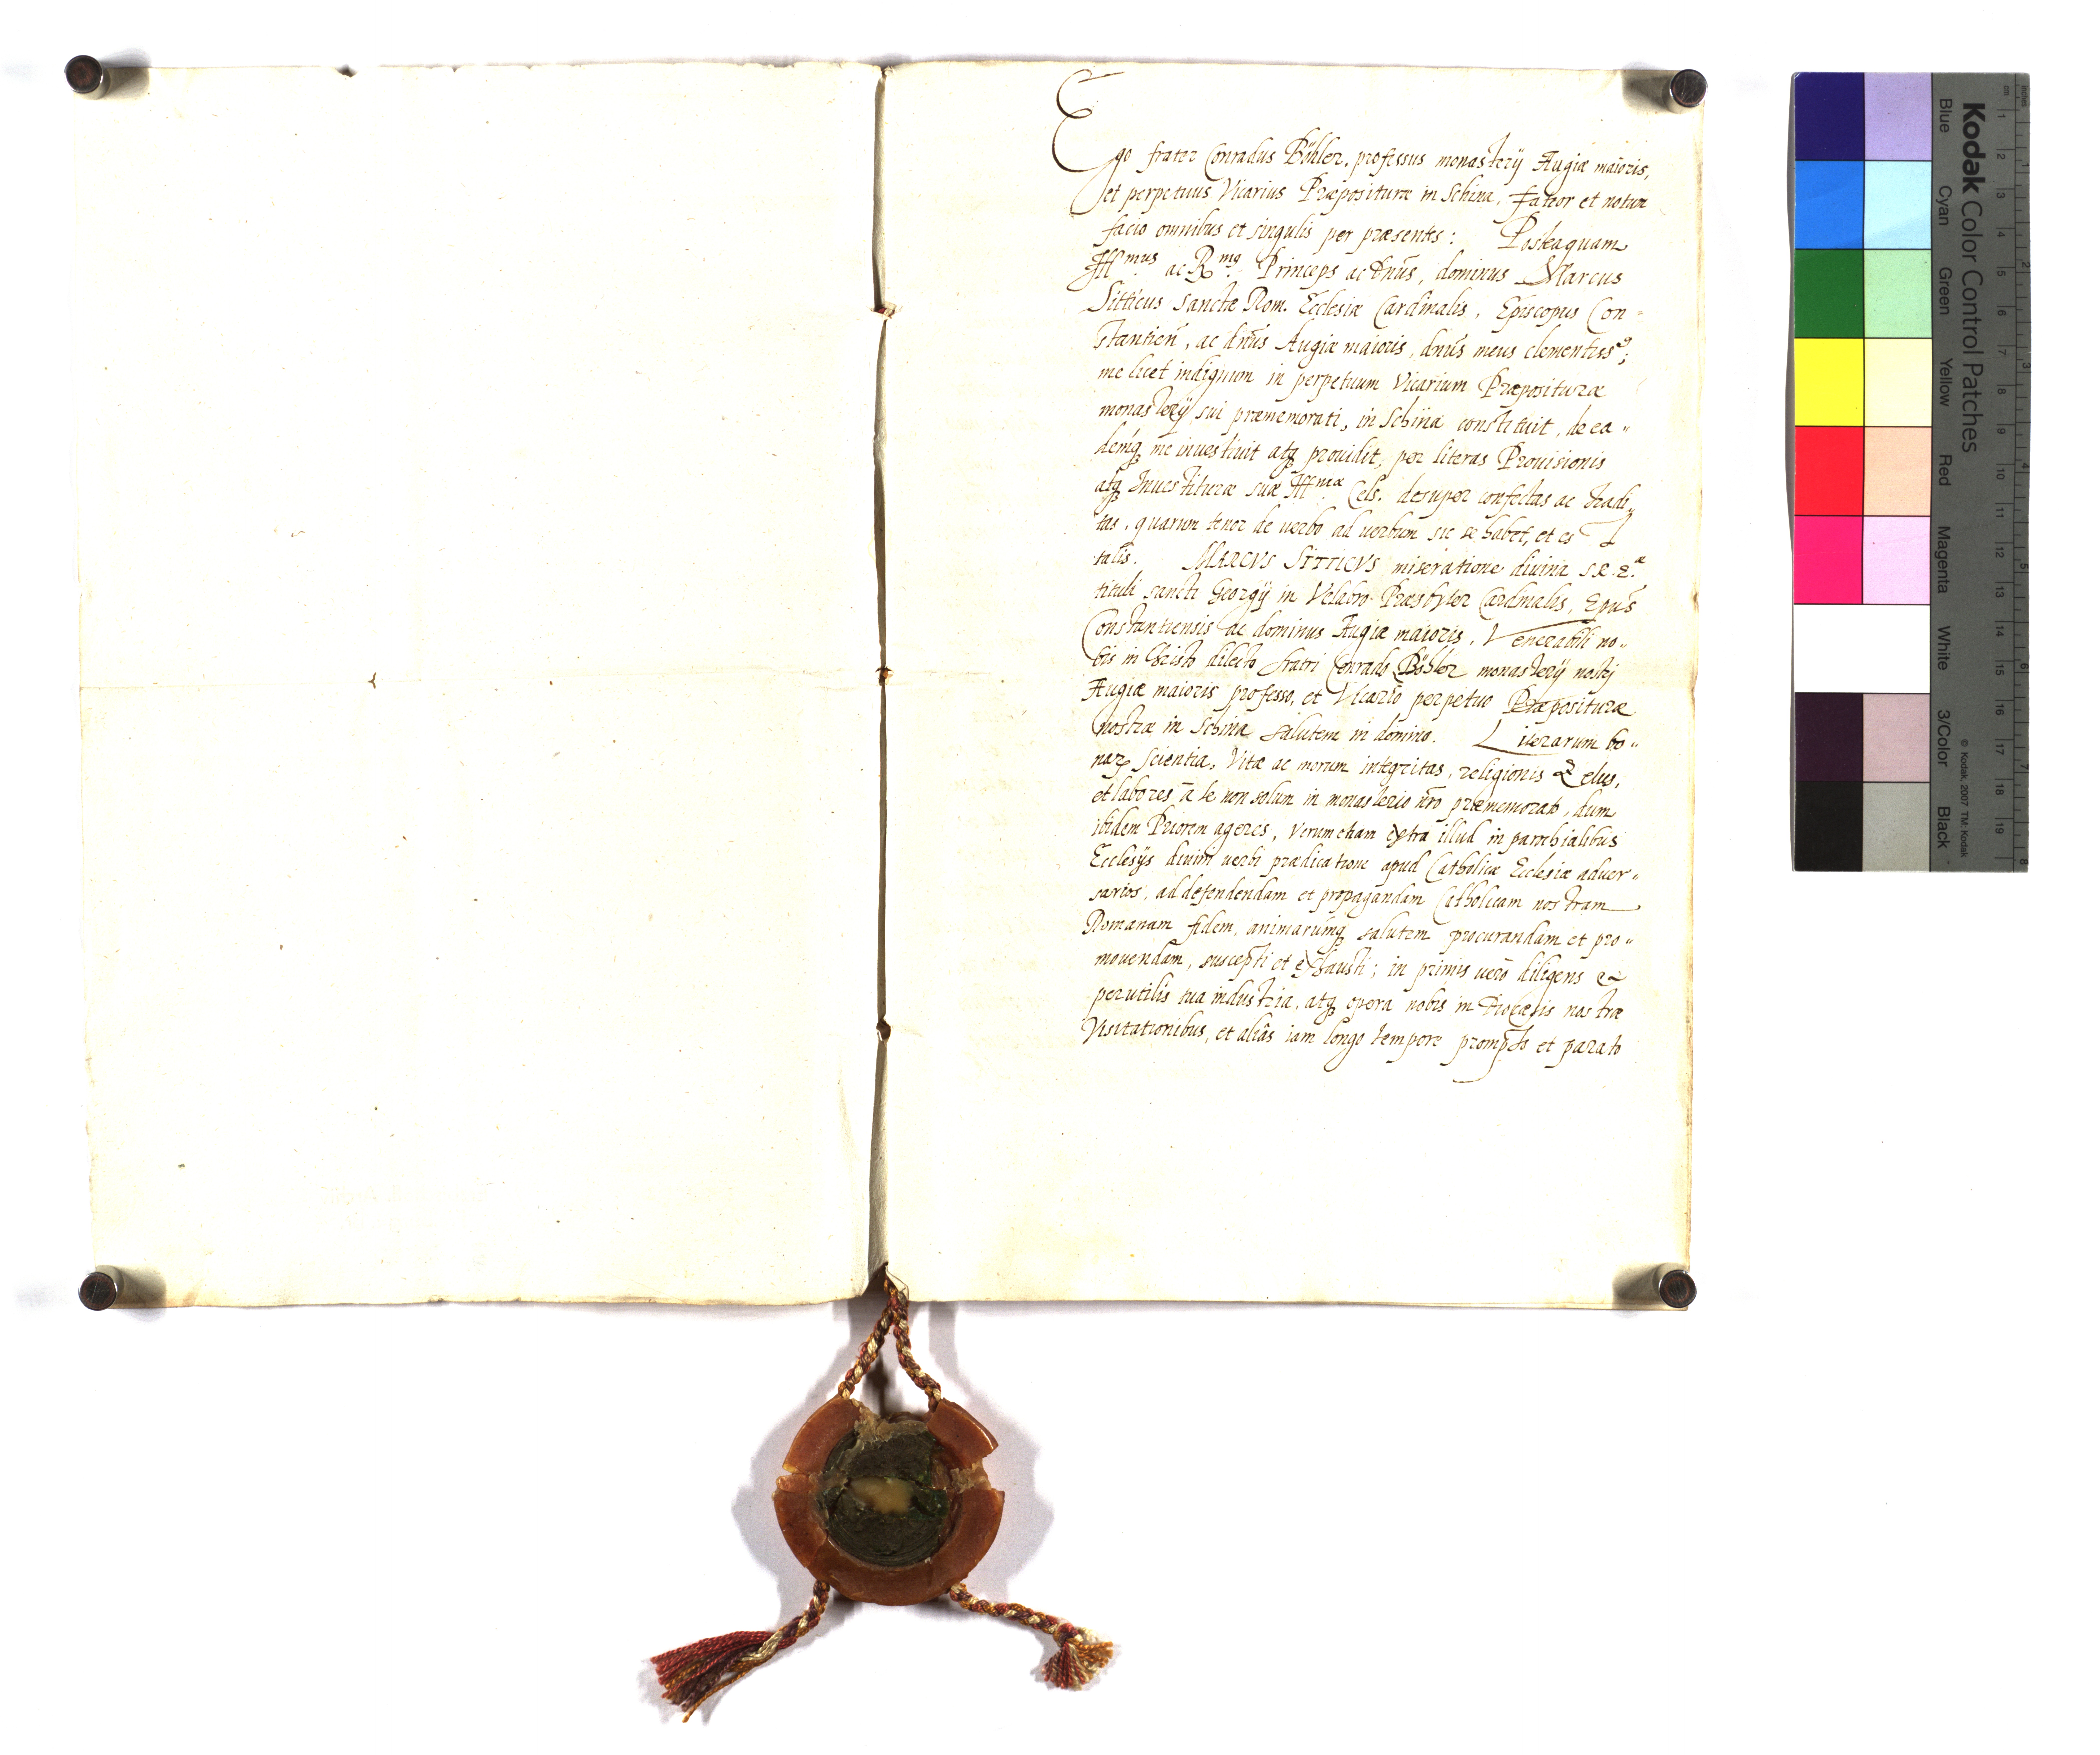 Ego frater Conradus Böhler, professus monasterij Augiæ maioris,
et perpetuus Vicarius Præposituræ in Schina, fateor et notum
facio omnibus et singulis per præsentes: Posteaquam
Ill^mus ac R^mq Princeps ac dnūs, dominus Marcus
Sitticus Sanctæ Rom. Ecclesiæ Cardinalis, Episcopus Con=
stantien̄, ac dnūs Augiæ maioris, dnūs meus clementiss^9;
me licet indignum in perpetuum Vicarium Præposituræ
monasterij sui præmemorati, in Schina constituit, de ea"
demq me inuestiuit atq prouidit, per literas Prouisionis
atq Inuestituræ suæ Ill^mæ Cels. desuper confectas ac tradi"
tas, quarum tenor de uerbo ad uerbum sic se habet, et est
talis. MARCVS SITTICVS miseratione diuina S.R.E.^æ
tituli sancti Georgij in Velabro Præsbyter Cardinalis, Epūs
Constantiensis ac dominus Augiæ maioris. Venerabili no"
bis in Christo dilecto fratri Conrado Böhler monasterij nostri
Augiæ maioris professo, et Vicario perpetuo Præposituræ
nostræ in Schina salutem in domino. Literarum bo"
narꝝ scientia, Vitæ ac morum integritas, religionis Zelus,
et labores à te non solum in monasterio nr̄o præmemorato, dum
ibidem Priorem ageres, Verum etiam extra illud in parochialibus
Ecclesijs diuini uerbi prædicatione apud Catholicæ Ecclesiæ aduer"
sarios, ad defendendam et propagandam Catholicam nostram
Romanam fidem, animarumq salutem procurandam et pro"
mouendam, suscepti et exhausti; in primis uerò diligens &
perutilis tua industria, atq opera nobis in Diocæsis nostræ
Visitationibus, et aliâs iam longo tempore prompto et parato
Kodak Color Control Patches
Blue Cyan Green Yellow Red Magenta White 3/Color Black
© Kodak, 2007 TM: Kodak
cm 1 2 3 4 5 6 7 8 9 10 11 12 13 14 15 16 17 18 19
inches 1 2 3 4 5 6 7 8